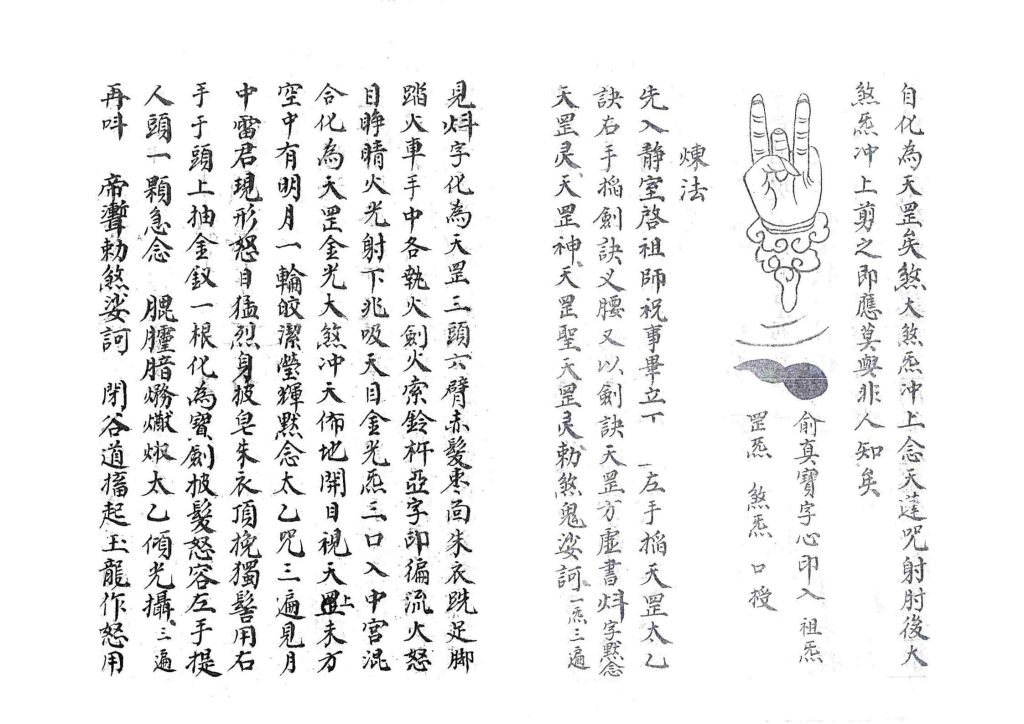 自化為天罡矣煞大煞炁冲上念天蓬咒射肘後大
煞炁冲上剪之即應莫與非人知矣
俞真寶字心印入祖炁
罡炁 煞炁 口授
煉法
先入静室啓祖師祝事畢立丁 一左手搯天罡太乙
訣右手搯劍訣叉腰又以劍訣天罡方虛書㪸字黙念
天罡灵天罡神天罡聖天罡灵勅煞鬼娑訶一炁三遍
見㪸字化為天罡三頭六臂赤髮枣面朱衣跣足脚
踏火車手中各執火劍火索鈴杵亞字印徧流火怒
目睁睛火光射下兆吸天目金光炁三口入中宮混
合化為天罡金光大煞冲天佈地開目視天罡上未方
空中有明月一輪皎潔瑩輝黙念太乙咒三遍見月
中雷君現形怒目猛烈身披皂朱衣頂挽獨髻用右
手于頭上抽金釵一根化為寶劍披髮怒容左手提
人頭一顆急念 太乙傾光攝三遍
再呌 帝 勅煞娑訶 閉谷道搐起玉龍作怒用